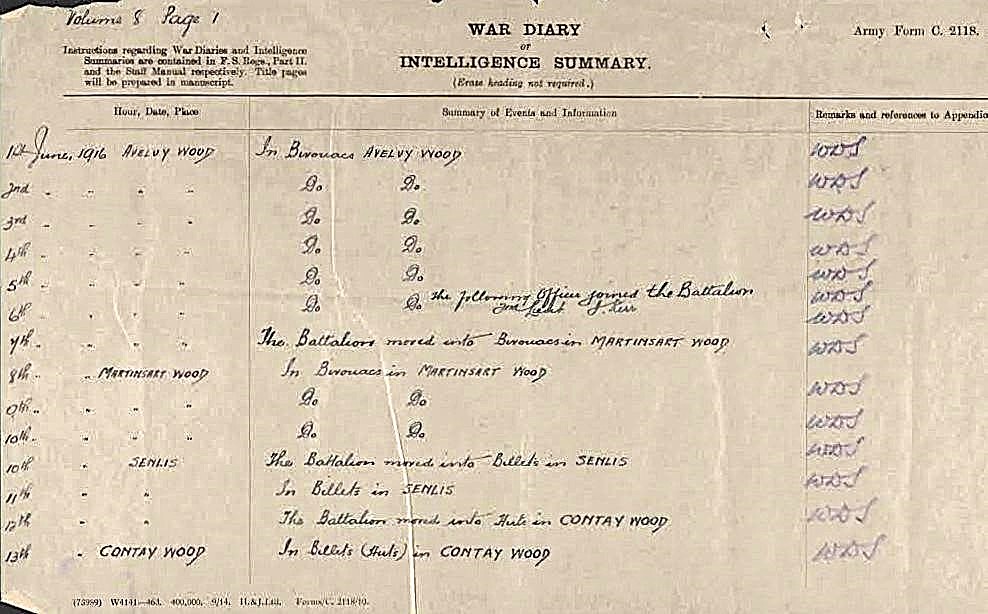 Volume 8 Page 1
WAR DIARY
or
INTELLIGENCE SUMMARY.
(Erase heading not required.)
Army Form C. 2118.
Instructions regarding War Diaries and Intelligence
Summaries are contained in F.S. Regs., Part II.
and the Staff Manual respectively. Title pages
will be prepared in manuscript.
Hour, Date, Place Summary of Events and Information Remarks and references to Appendic
1st June, 1916 AVELVY WOOD In Bivouacs AVELVY WOOD WDS
2nd " " " " Do Do WDS
3rd " " " " Do Do WDS
4th " " " " Do Do WDS
5th " " " " Do Do WDS
6th " " " " Do Do The following Officer joined the Battalion WDS
2nd Lieut J. Kerr WDS
7th " " " " The Battalion moved into Bivouacs in MARTINSART WOOD WDS
8th " " MARTINSART WOOD In Bivouacs in MARTINSART WOOD
9th " " " " Do Do WDS
10th " " " " Do Do WDS
10th " SENLIS The Battalion moved into Billets in SENLIS WDS
11th " " In Billets in SENLIS WDS
12th " " The Battalion moved into Huts in CONTAY WOOD WDS
13th " CONTAY WOOD In Billets (Huts) in CONTAY WOOD WDS
(73989) W4141—463. 400,000. 9/14. H.&J.Ltd. Forms/C. 2118/10.